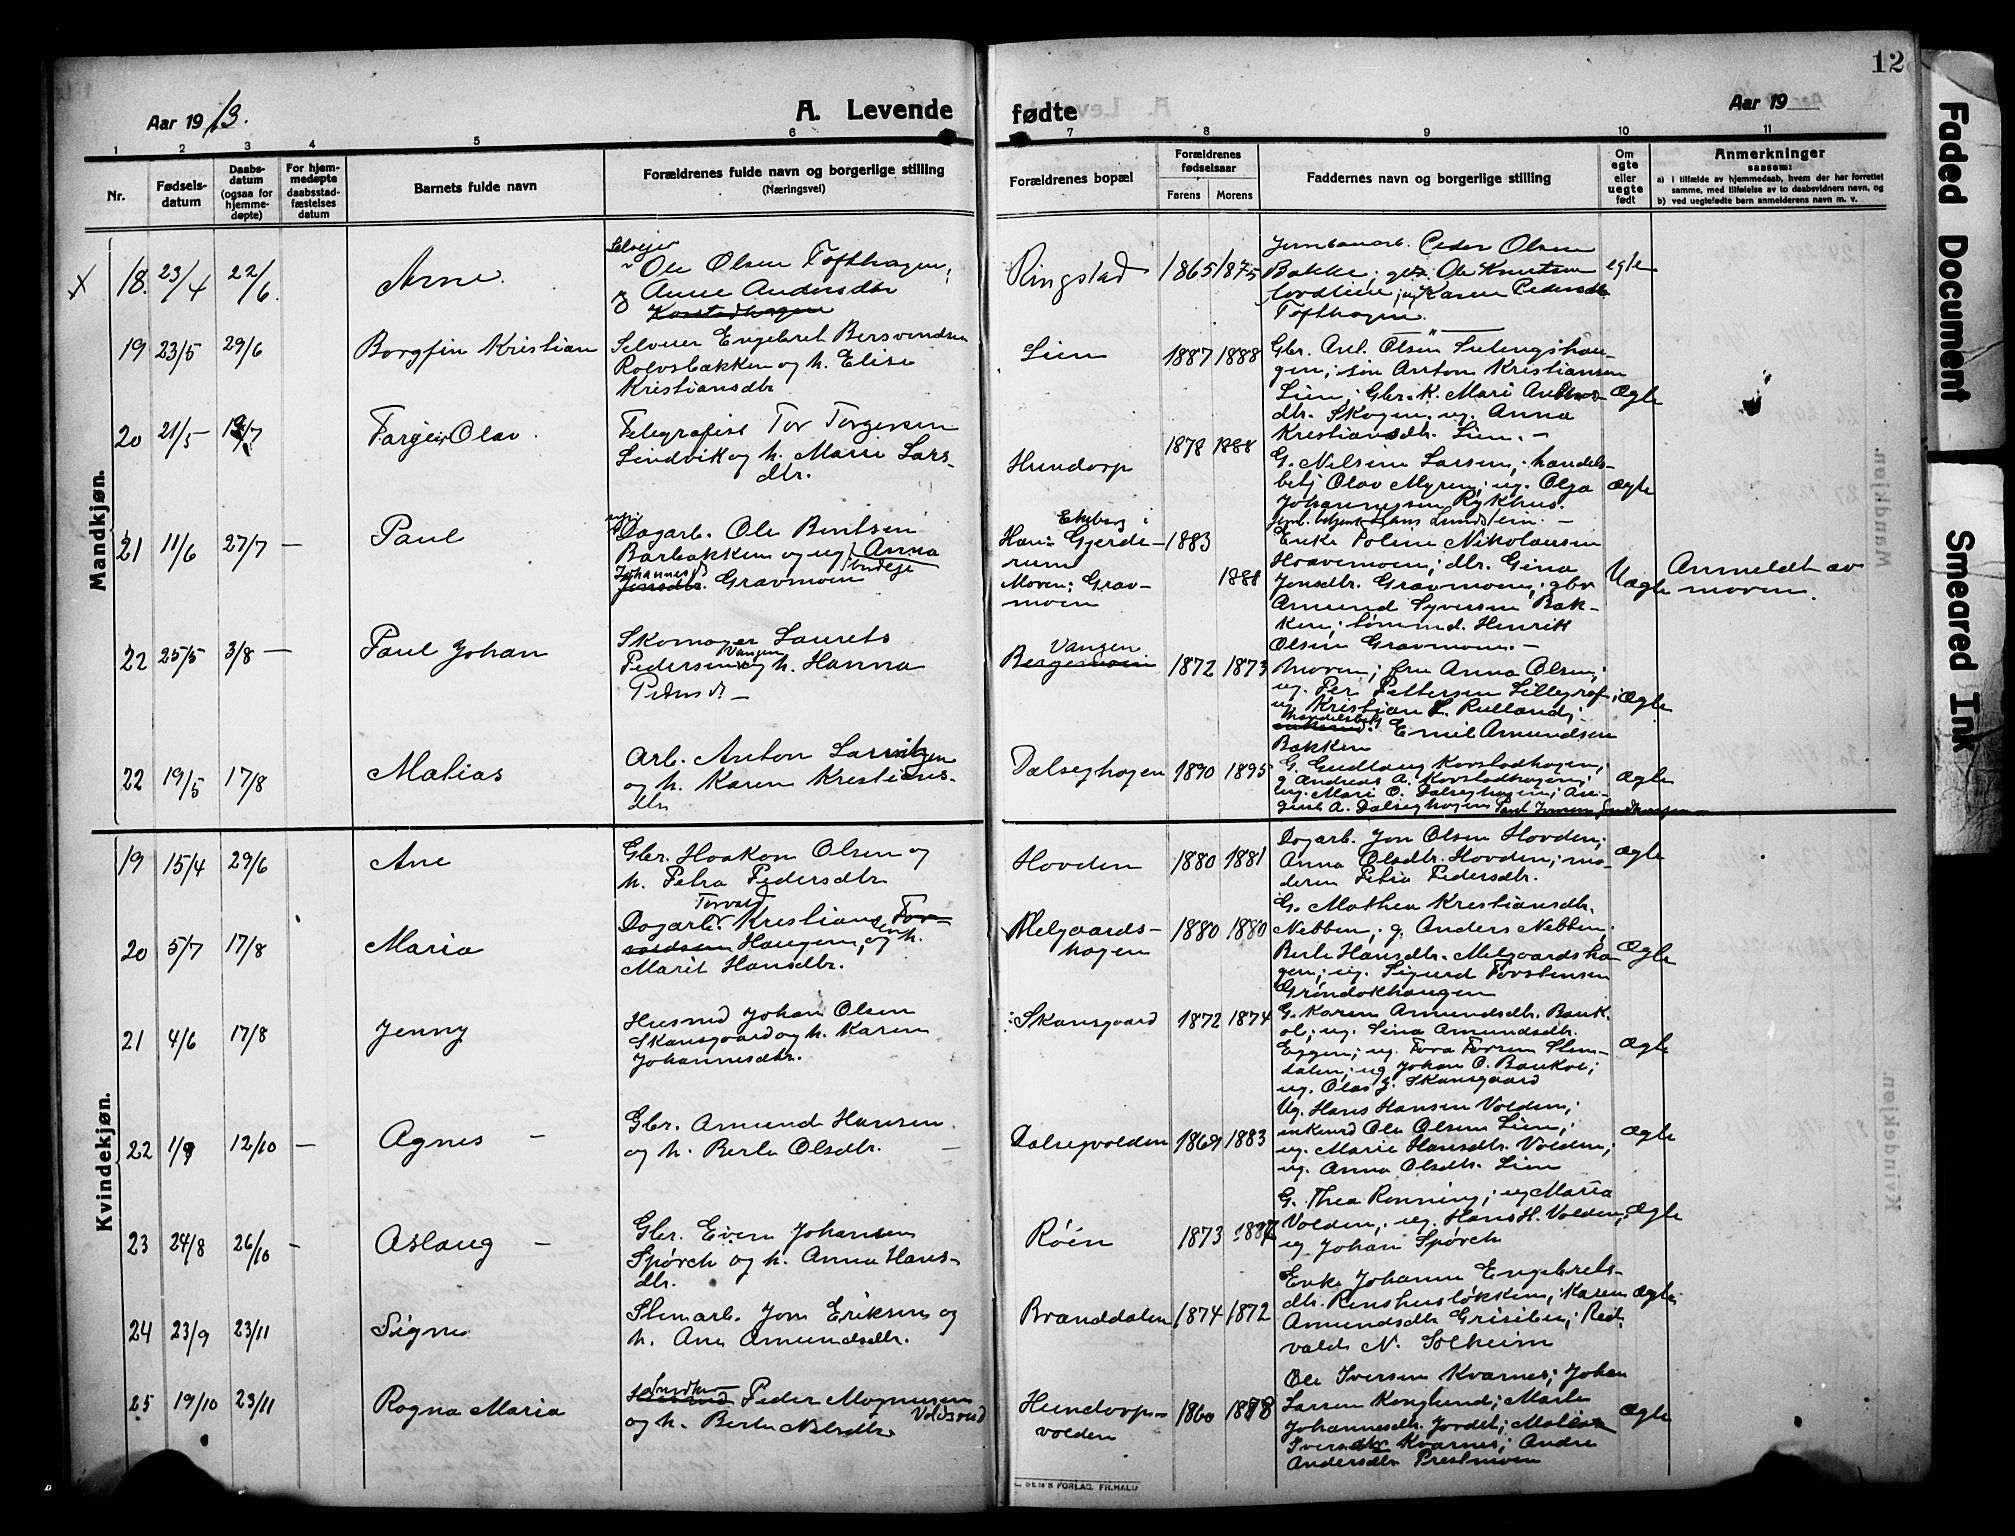 12
Aar 1913.
A. Levende
fødte
Aar 19
1 2 3 4 5 6 7 8 9 10 11
Nr.
Fødsels-
datum
Daabs-
datum
(ogsaa for
hjemme-
døpte)
For hjem-
medøpte
daabsstad-
fæstelses
datum
Barnets fulde navn
Forældrenes fulde navn og borgerlige stilling
(Næringsvei)
Forældrenes bopæl
Forældrenes
fødselsaar
Farens Morens
Faddernes navn og borgerlige stilling
Om
egte
eller
uegte
født
Anmerkninger
saasom:
a) i tilfælde av hjemmedaab, hvem der har forrettet
samme, med tilføielse av to daabsvidners navn, og
b) ved uegtefødte barn anmelderens navn m. v.
Mandkjøn.
18. 23/4 22/6 Arne
Selveier
Ole Olsen Tofthagen,
og Anne Andersdtr
Korstadhagen
Ringstad 1865 1875
Jernbanearb. Peder Olsen
Bakke; Ole Knutsen
og Karen Pedersdtr
Tofthagen
egte
19 23/5 29/6 Borgfin Kristian
Selveier Engebret Bersvendsen
Rolvsbakken og h. Elise
Kristiansdtr
Lien 1887 1888
Gbr. Ant. Olsen
gen; søn Anton Kristiansen
Lien; Gbr. K. Mari
dtr. Skogen, ug. Anna
Kristiansdtr. Lien. –
Ægte
20 21/5 – 13/7 Targeir Olav.
Telegrafist Tor Torgersen
Lindvik og h. Marie Lars-
dtr.
Hundorp 1878 1888
G. Nilsine Larsen; handels-
betj Olav Myren; ug. Olga
Johannessen Rykhus.
Jernb. betjent Hans Lundstein. –
Ægte
21 11/6 27/7 – Paul
ungk.
Dagarb. Ole Berntsen
Barbakken og ug. Anna
Johannesd. budeje
Jensdtr. Gravmoen
Ekeberg i
Gjerde-
rum
Moren: Grav-
moen
1883
1888
Enke Poline Nikolausen
Hoavemoen; dtr. Gina
Jonsdtr. Gravmoen; gbr
Amund Syversen Bak-
ken; tømmd. Henrik
Olsen Gravmoen. –
Uægte
Anmeldt av
moren.
22 25/5 3/8 – Paul Johan
Skomager Laurets
Vangen
Pedersen og h. Hanna
Pedersd. –
Vangen
Bergemoen 1872 1873
Moren; fru Anna Olsen;
ug. Per Pettersen Lillegraf;
ug Kristian L. Rulland;
handelsbetj.
Emil Amundsen
Bakken
Ægte
22 19/5 17/8 Matias
Arb. Anton Lauritzen
og h. Karen Kristians-
dtr
Dalseghagen 1890 1895
G. Gudlaug Korstadhagen;
g Andreas A. Korstadhagen;
ug. Mari O. Dalseghagen; Au-
gust A. Dalseghagen
Ægte
Kvindekjøn.
19 15/4 29/6 Ane
Gbr. Haakon Olsen og
h. Petra Pedersdtr
Hovden 1880 1881
Dagarb. Jon Olsen Hovden;
Anna Olsdtr. Hovden; mo-
deren Petra Pedersdtr.
Ægte
20 5/7 17/8 Maria
Torvald
Dagarb. Kristiansen Tor-
valdsen Haugen, og h.
Marit Hansdtr.
Melgaards-
hagen
1880 1880
G. Mathea Kristiansdtr.
Nebben; g. Anders Nebben;
Berte Hansdtr. Melgaardsha-
gen; ug. Sigurd Torstensen
Grøndokhaugen
Ægte
21 4/6 17/8 Jenny
Husmd Johan Olsen
Skansgaard og h. Karen
Johannesdtr.
Skansgaard 1872 1874
G. Karen Amundsdtr. Bauk-
ol; ug. Lina Amundsdtr.
Eggen; ug. Tora Torsen Slem-
dalen; ug Johan O. Baukol;
ug. Olas J. Skansgaard
Ægte
22 1/9 12/10 – Agnes –
Gbr. Amund Hansen
og h. Berte Olsdtr. –
Dalsegvolden 1869 1883
Ug. Hans Hansen Volden;
enkemd Ole Olsen Lien;
ug. Marie Hansdtr. Volden;
ug. Anna Olsdtr. Lien
Ægte
23 24/8 26/10 – Aslaug –
Gbr. Even Johansen
Spørck og h. Anna Hans-
dtr.
Røen 1873 1887
G. Thea Rønning; ug Maria
Volden; ug. Hans H. Volden;
ug Johan Spørck
Ægte
24 23/9 23/11 Signe
Stenarb. Jon Eriksen og
h. Ane Amundsdtr.
Branddalen 1874 1872
Enke Johanne Engebrets-
dtr. Renshusløkken; Karen
Amundsdtr Griselien; Reid-
vald N. Solheim
Ægte
25 19/10 23/11 Ragna Maria
Peder Magnussen
Voldsrud
og h. Berte Nilsdtr.
Hundorps-
volden
1860 1878
Ole Iversen Kvarnes; Johan
Larsen Konglund; Marte
Johannesdtr. Jordet; Matias
Iversdtr Kvarnes; Andre
Andersdtr Prestmoen
Ægte
SEM'S FORLAG, FR.HALD
Faded Document
Smeared Ink